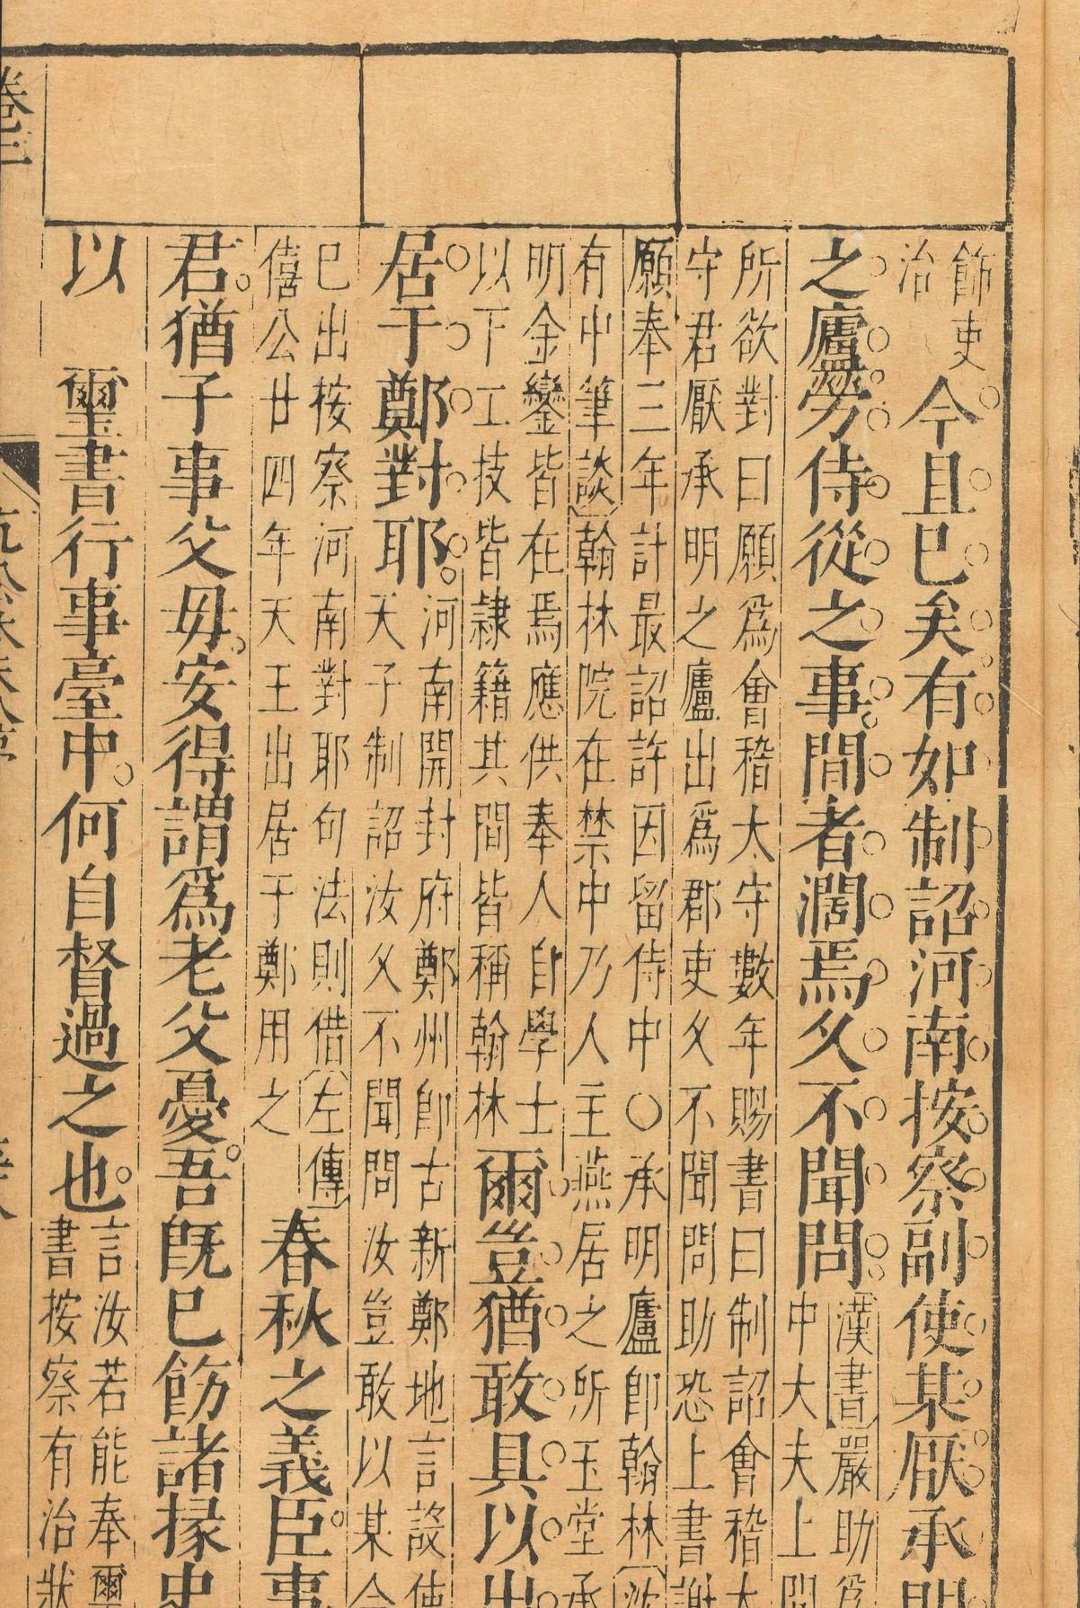 飾吏
治
今且已矣有如制詔河南按察副使某厭承明
之廬勞侍從之事間者濶焉久不聞問
漢書嚴助為
中大夫上問
所欲對曰願爲會稽太守數年賜書曰制詔會稽太
守君厭承明之廬出爲郡吏久不聞問助恐上書謝
願奉三年計最詔許因留侍中○承明廬卽翰林沈
有中筆談翰林院在禁中乃人主燕居之所玉堂承
明金鑾皆在焉應供奉人自學士
以下工技皆隷籍其間皆稱翰林
爾豈猶敢具以出
居于鄭對耶
河南開封府鄭州卽古新鄭地言設使
天子制詔汝久不聞問汝豈敢以某今
已出按察河南對耶句法則借左傳
僖公廿四年天王出居于鄭用之
春秋之義臣事
君猶子事父毋安得謂爲老父憂吾旣已飭諸掾史
以 璽書行事臺中何自督過之也
言汝若能奉璽
書按察有治狀
卷三